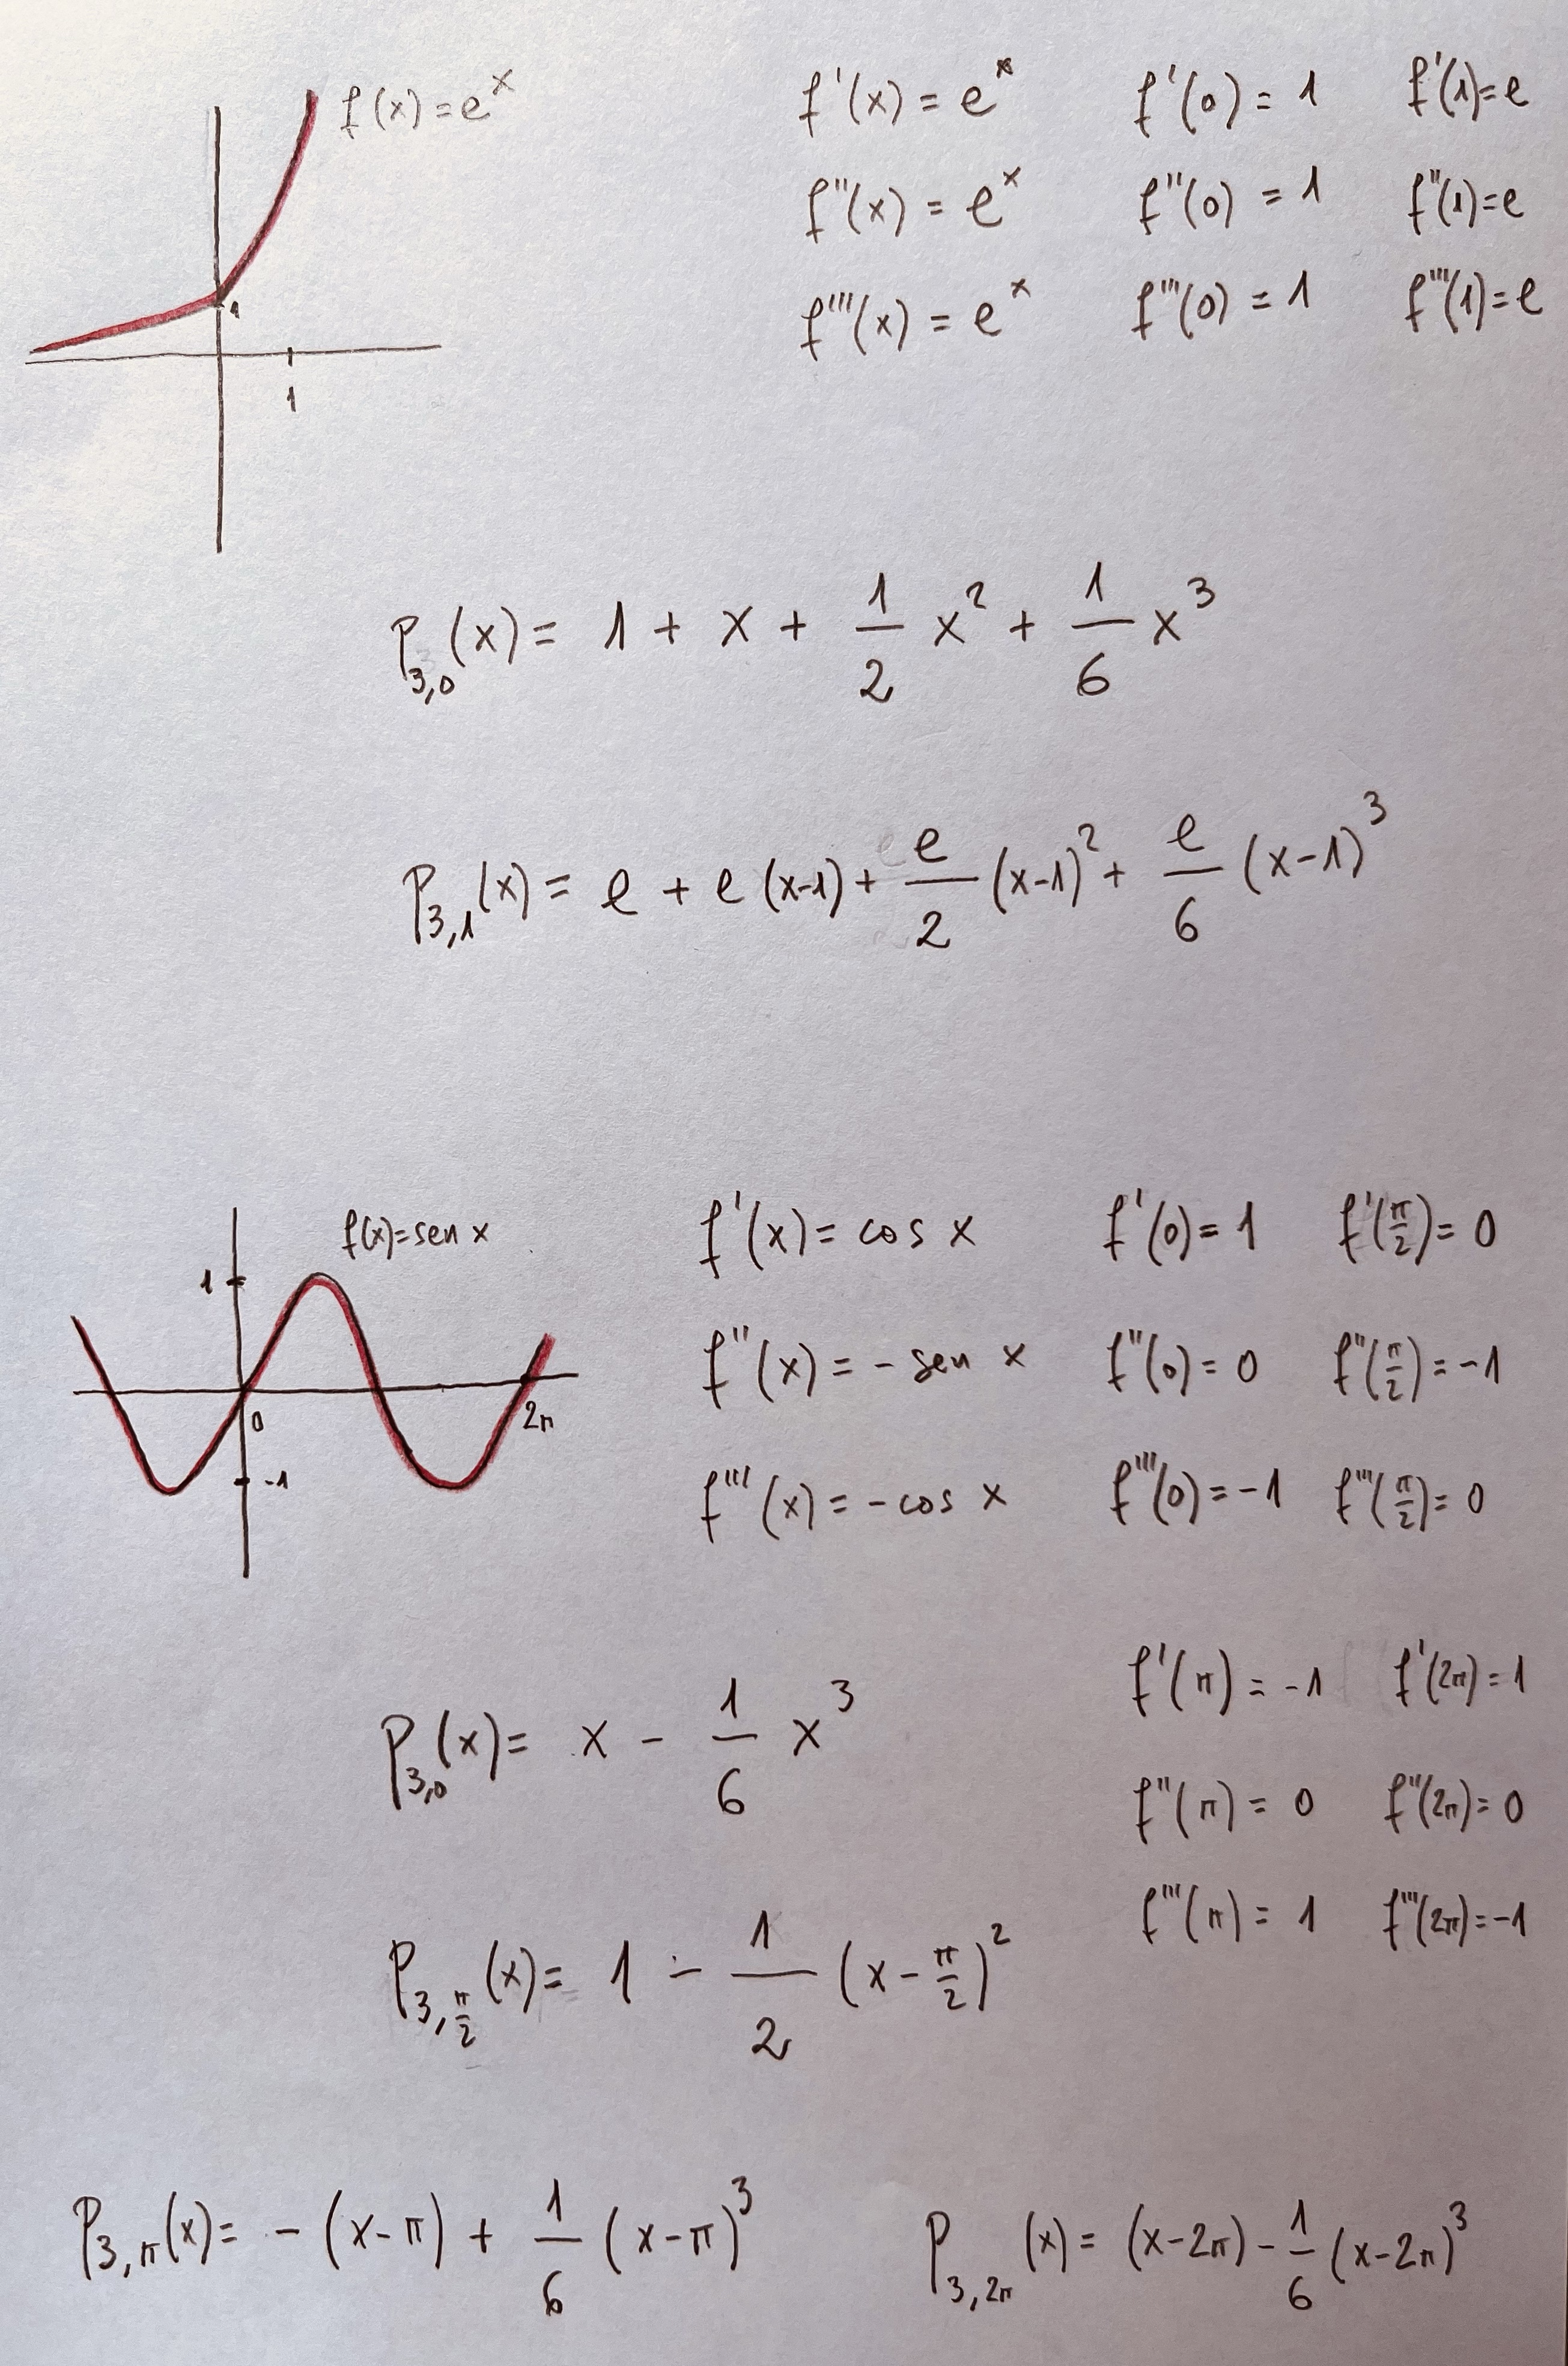 f(x) = e^x
1
1
f'(x) = e^x f'(0) = 1 f'(1) = e
f''(x) = e^x f''(0) = 1 f''(1) = e
f'''(x) = e^x f'''(0) = 1 f'''(1) = e
P_{3,0}(x) = 1 + x + \frac{1}{2} x^2 + \frac{1}{6} x^3
P_{3,1}(x) = e + e (x-1) + \frac{e}{2} (x-1)^2 + \frac{e}{6} (x-1)^3
f(x) = sen x
1
0 2π
-1
f'(x) = cos x f'(0) = 1 f'(\frac{π}{2}) = 0
f''(x) = - sen x f''(0) = 0 f''(\frac{π}{2}) = -1
f'''(x) = - cos x f'''(0) = -1 f'''(\frac{π}{2}) = 0
f'(π) = -1 f'(2π) = 1
f''(π) = 0 f''(2π) = 0
f'''(π) = 1 f'''(2π) = -1
P_{3,0}(x) = x - \frac{1}{6} x^3
P_{3,\frac{π}{2}}(x) = 1 - \frac{1}{2} (x - \frac{π}{2})^2
P_{3,π}(x) = - (x-π) + \frac{1}{6} (x-π)^3 P_{3,2π}(x) = (x-2π) - \frac{1}{6} (x-2π)^3